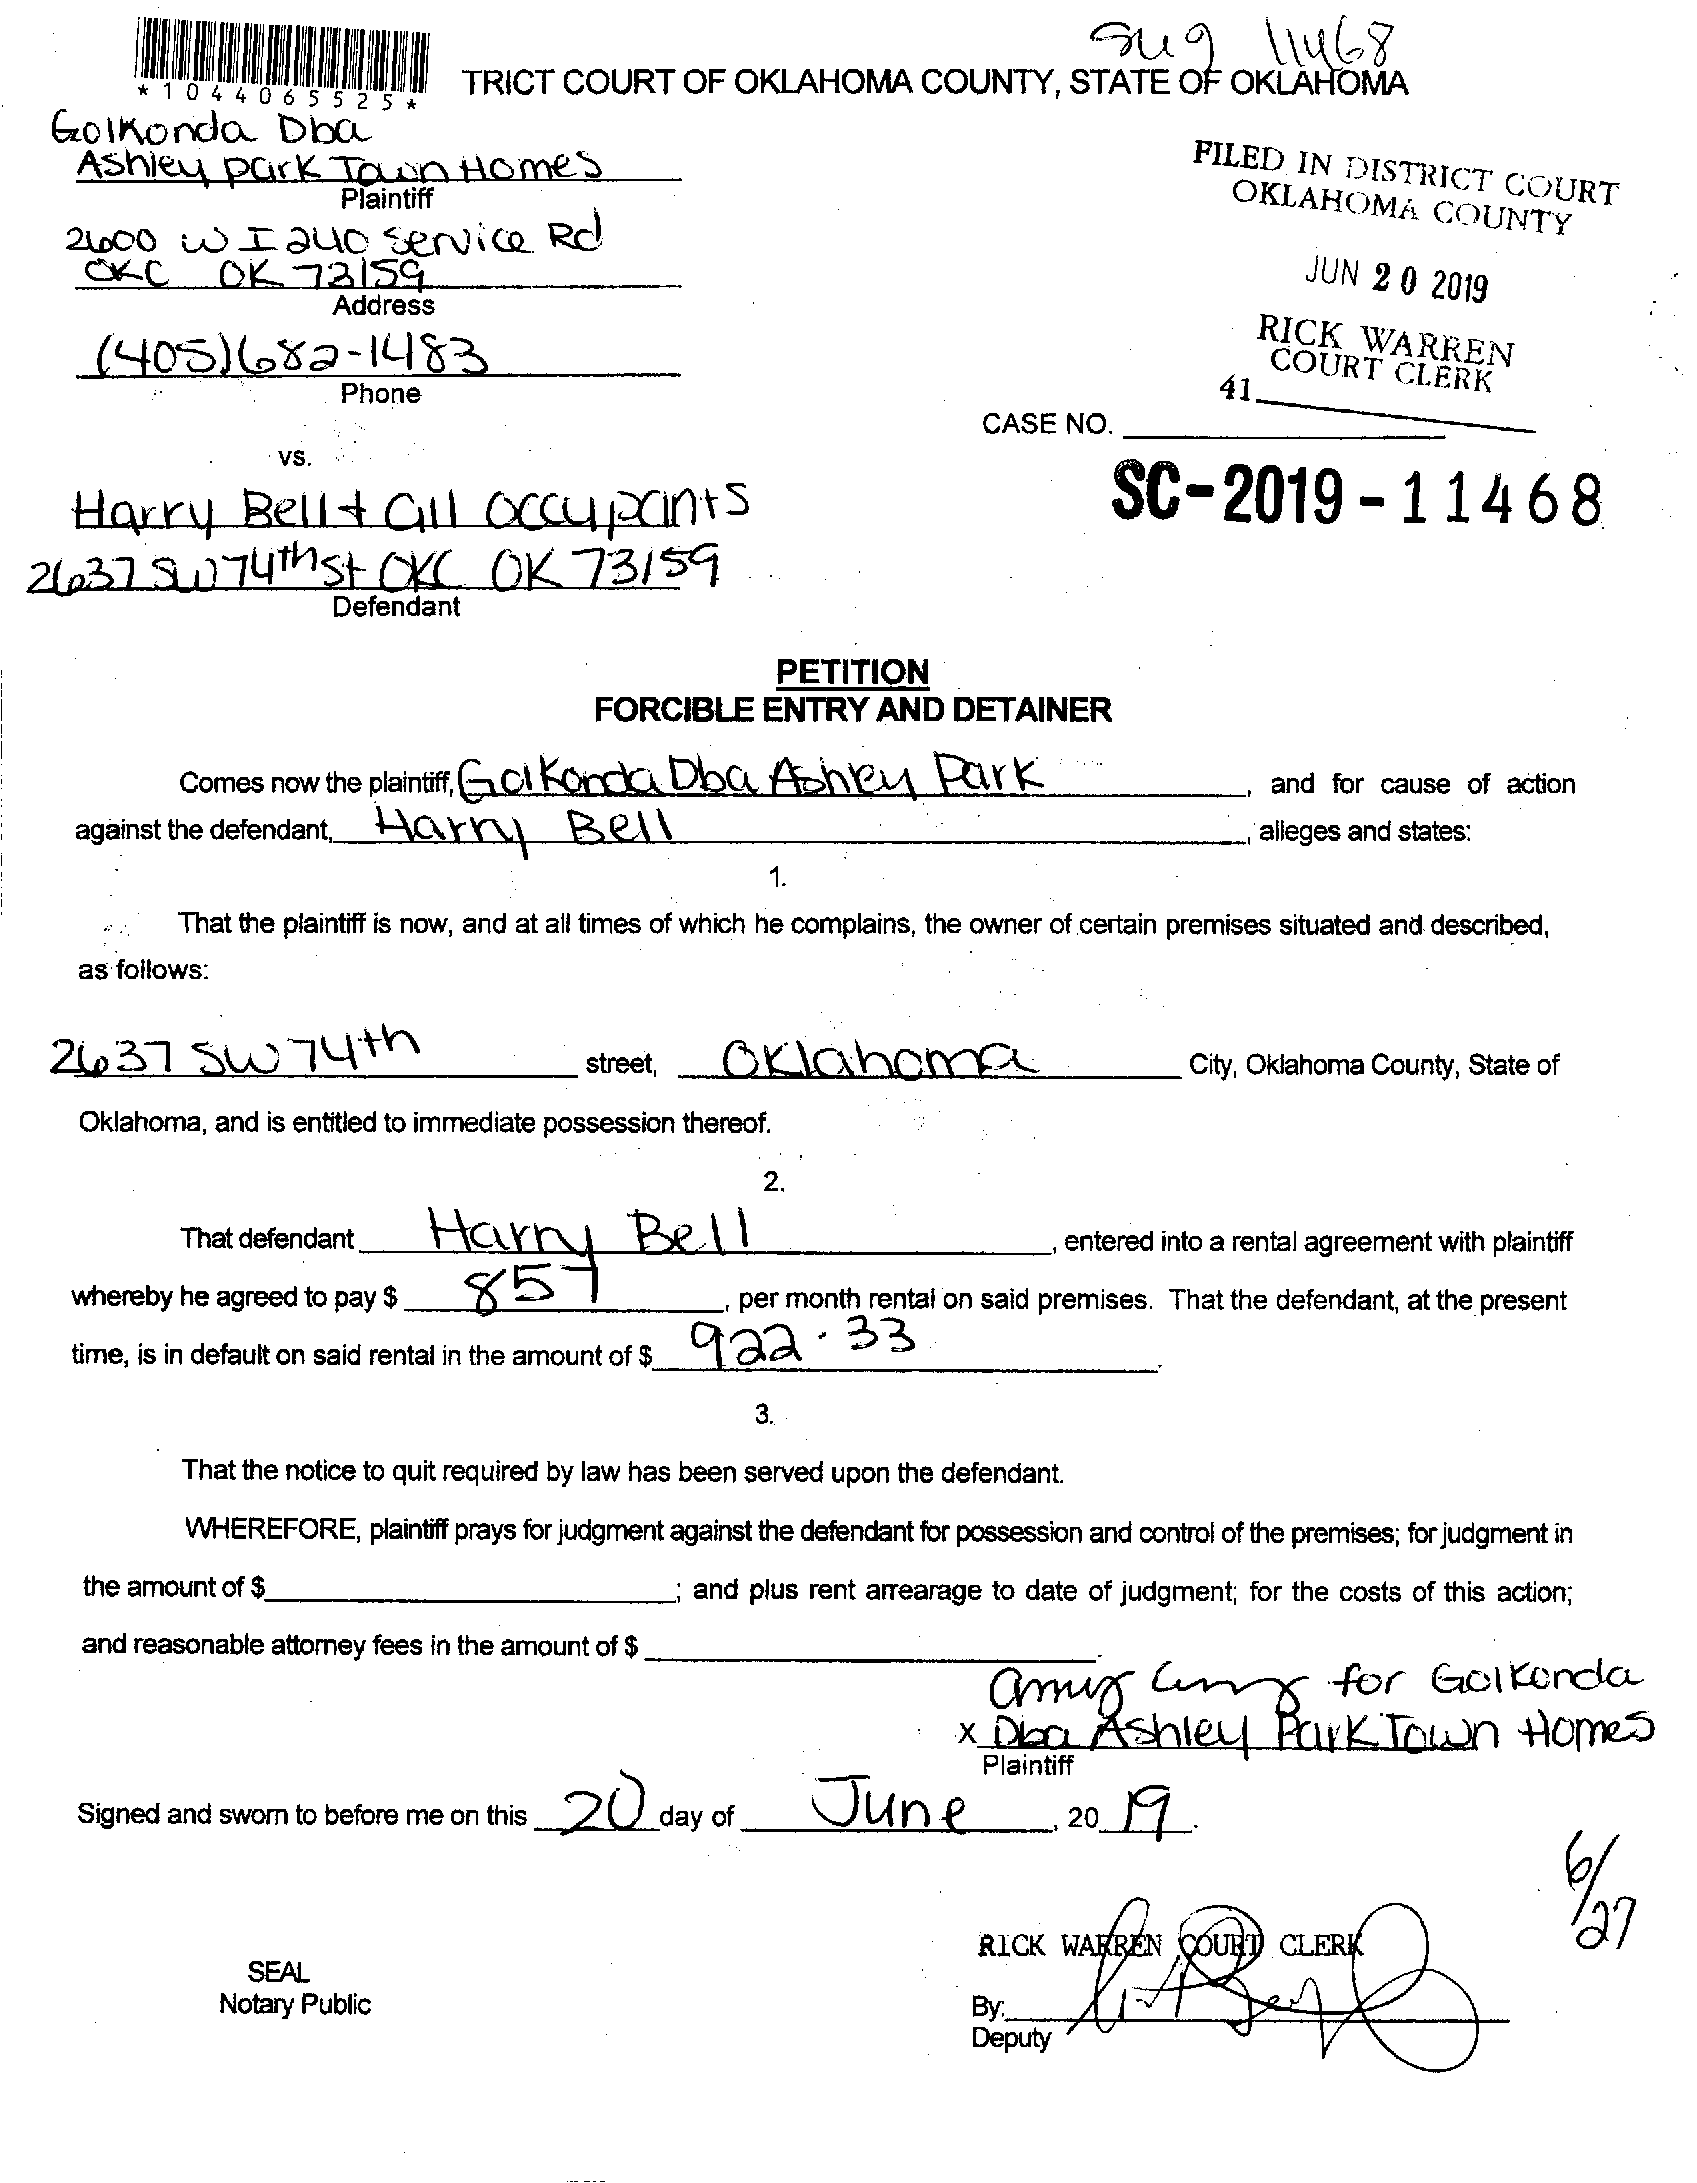 11468
*1044065525*
TRICT COURT OF OKLAHOMA COUNTY, STATE OF OKLAHOMA
Golkonda Dba
Ashley Park Town Homes
Plaintiff
2600 W I 240 Service Rd
OKC OK 73159
Address
(405)682-1483
Phone
FILED IN DISTRICT COURT
OKLAHOMA COUNTY
JUN 20 2019
RICK WARREN
COURT CLERK
41
CASE NO.
SC-2019-11468
vs.
Harry Bell + all occupants
2637 SW 74th St OKC OK 73159
Defendant
PETITION
FORCIBLE ENTRY AND DETAINER
Comes now the plaintiff, Golkonda Dba Ashley Park, and for cause of action
against the defendant, Harry Bell, alleges and states:
1.
That the plaintiff is now, and at all times of which he complains, the owner of certain premises situated and described,
as follows:
2637 SW 74th street, Oklahoma City, Oklahoma County, State of
Oklahoma, and is entitled to immediate possession thereof.
2.
That defendant Harry Bell, entered into a rental agreement with plaintiff
whereby he agreed to pay $ 857, per month rental on said premises. That the defendant, at the present
time, is in default on said rental in the amount of $ 922.33.
3.
That the notice to quit required by law has been served upon the defendant.
WHEREFORE, plaintiff prays for judgment against the defendant for possession and control of the premises; for judgment in
the amount of $ ; and plus rent arrearage to date of judgment; for the costs of this action;
and reasonable attorney fees in the amount of $ .
for Golkonda
x Dba Ashley Park Town Homes
Plaintiff
Signed and sworn to before me on this 20 day of June, 20 19.
6/27
RICK WARREN COURT CLERK
SEAL
Notary Public
By:
Deputy